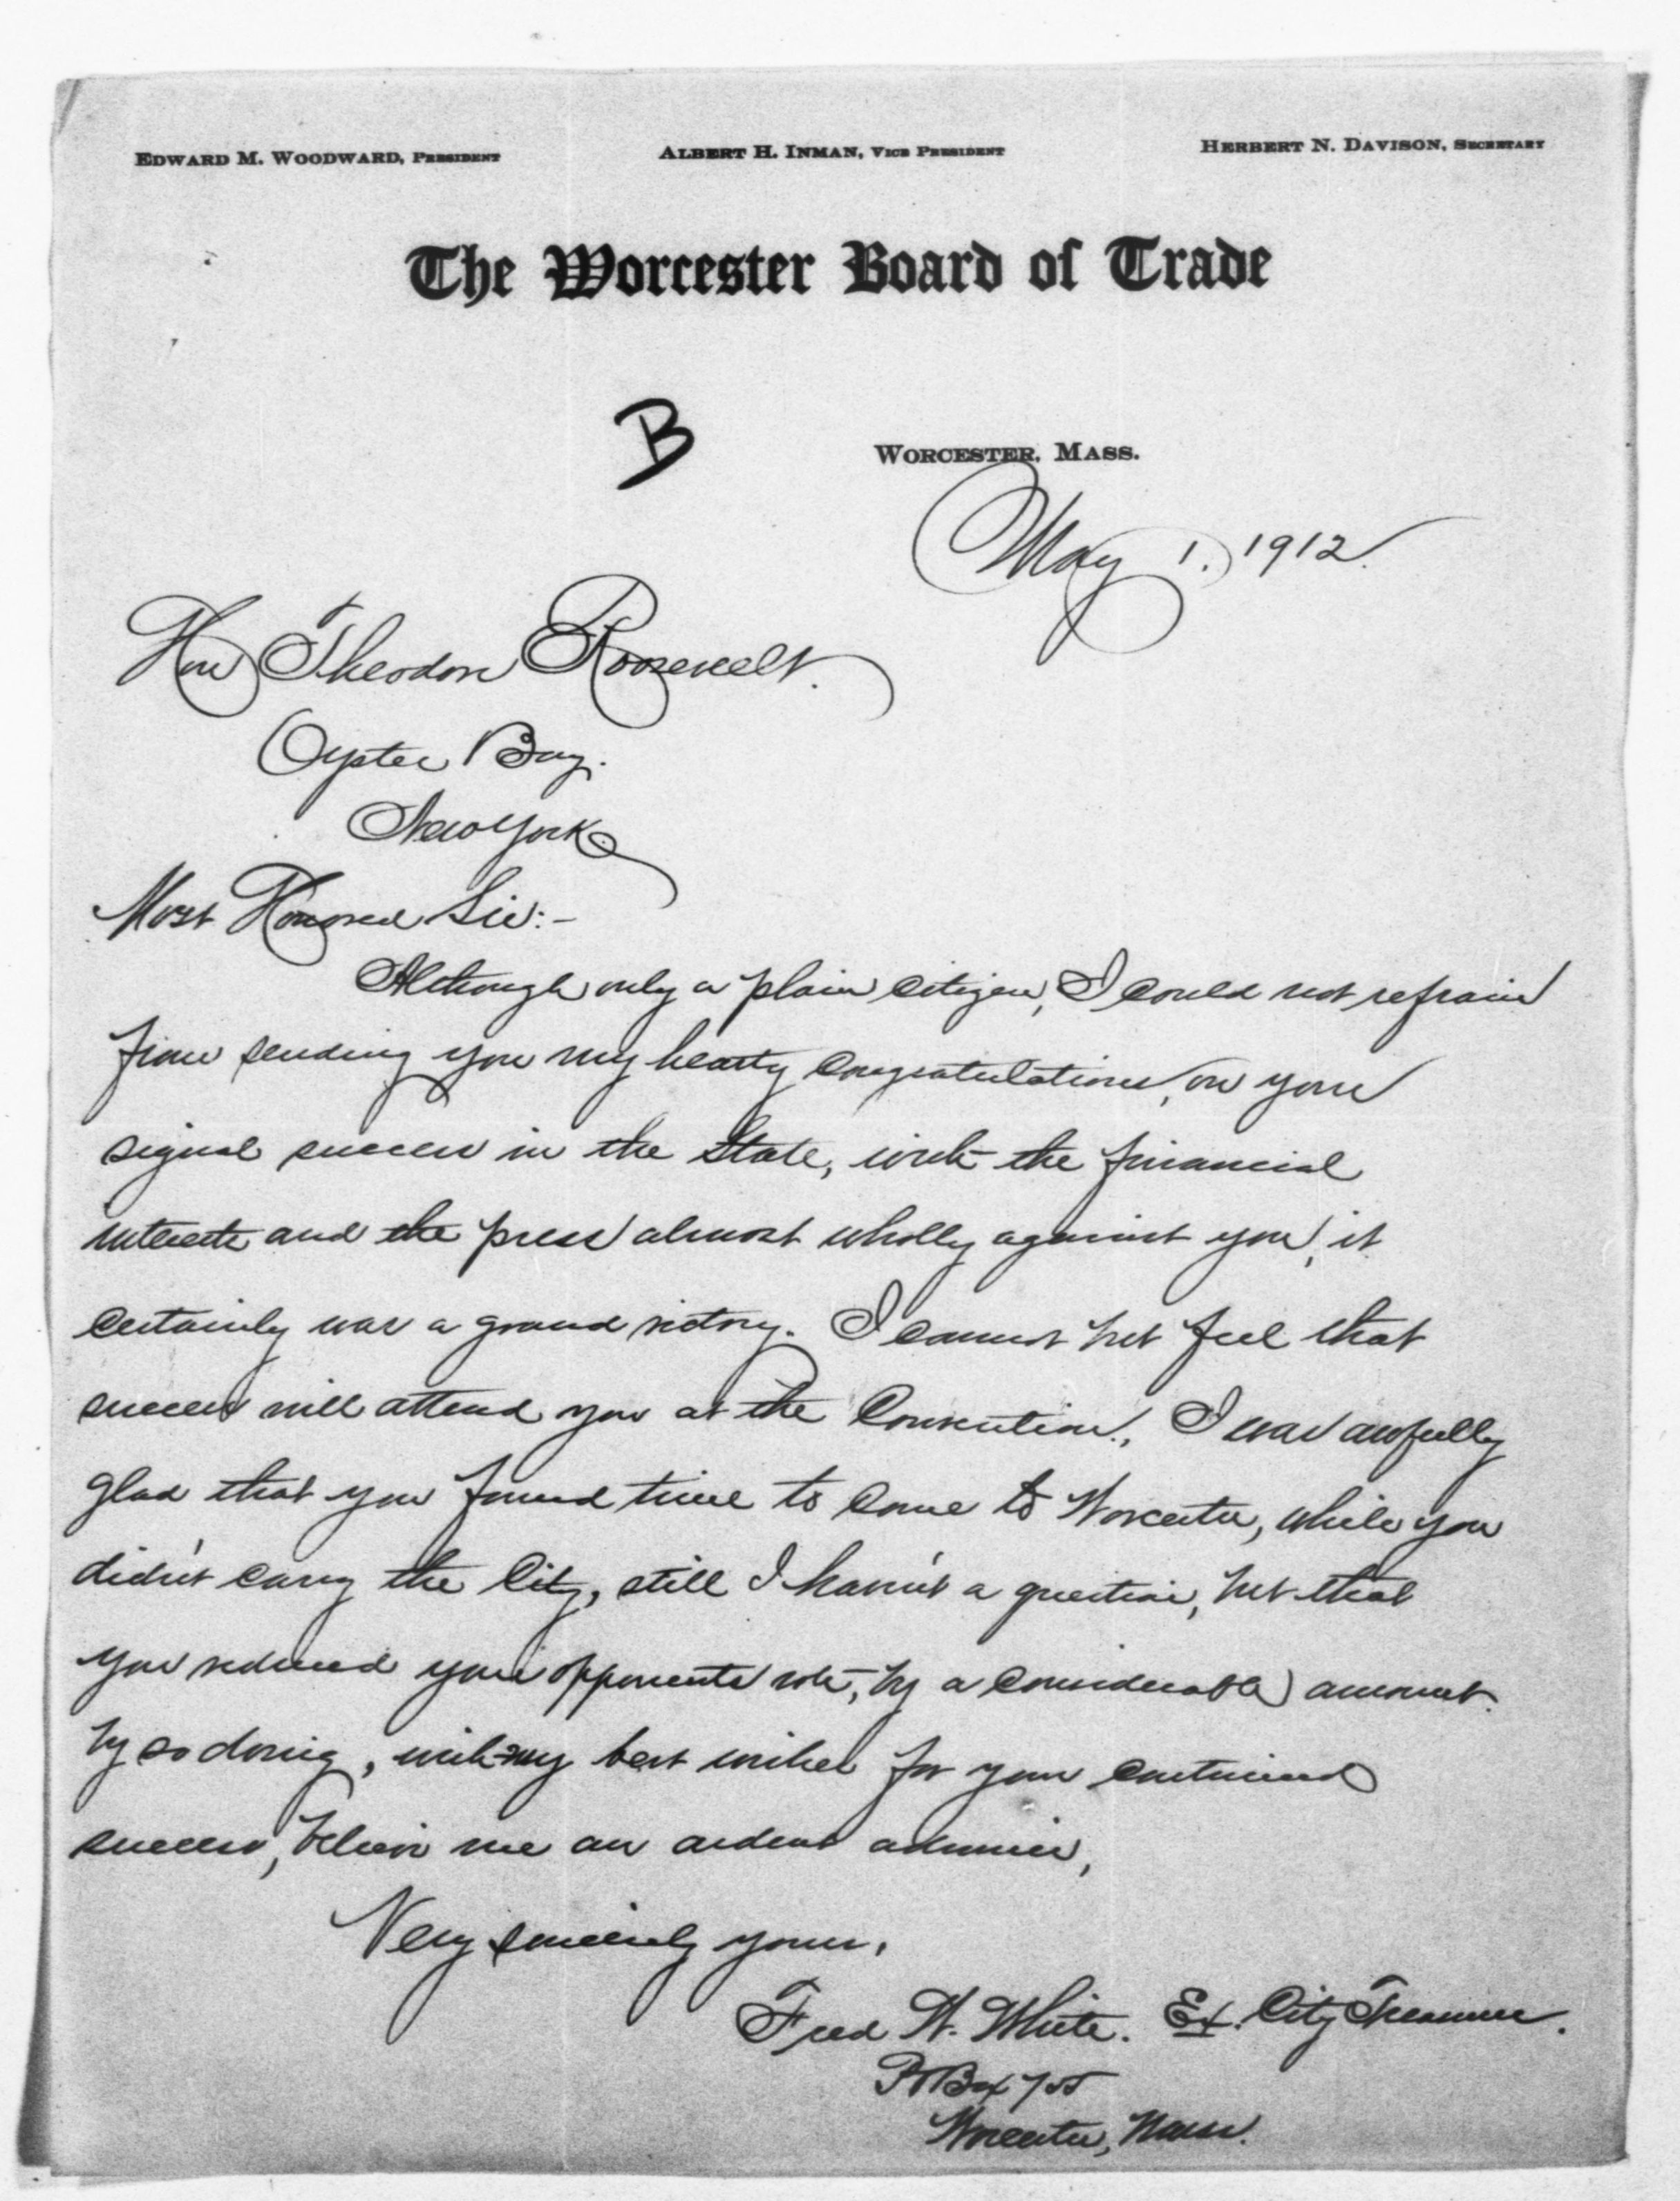 EDWARD M. WOODWARD, PRESIDENT ALBERT H. INMAN, VICE PRESIDENT HERBERT N. DAVISON, SECRETARY
The Worcester Board of Trade
B
WORCESTER, MASS.
May 1, 1912.
Hon Theodore Roosevelt.
Oyster Bay.
New York
Most Honored Sir:-
Although only a plain citizen, I could not refrain
from sending you my hearty congratulations, on your
signal success in the State, with the financial
interests and the press almost wholly against you, it
certainly was a grand victory. I cannot but feel that
success will attend you at the Convention. I was awfully
glad that you found time to come to Worcester, while you
didn't carry the City, still I haven't a question, but that
you reduced your opponents vote, by a considerable amount.
by so doing, with my best wishes for your continued
success, believe me an ardent admirer,
Very sincerely yours,
Fred W. White. Ex. City Treasurer.
P O Box
Worcester, Mass.